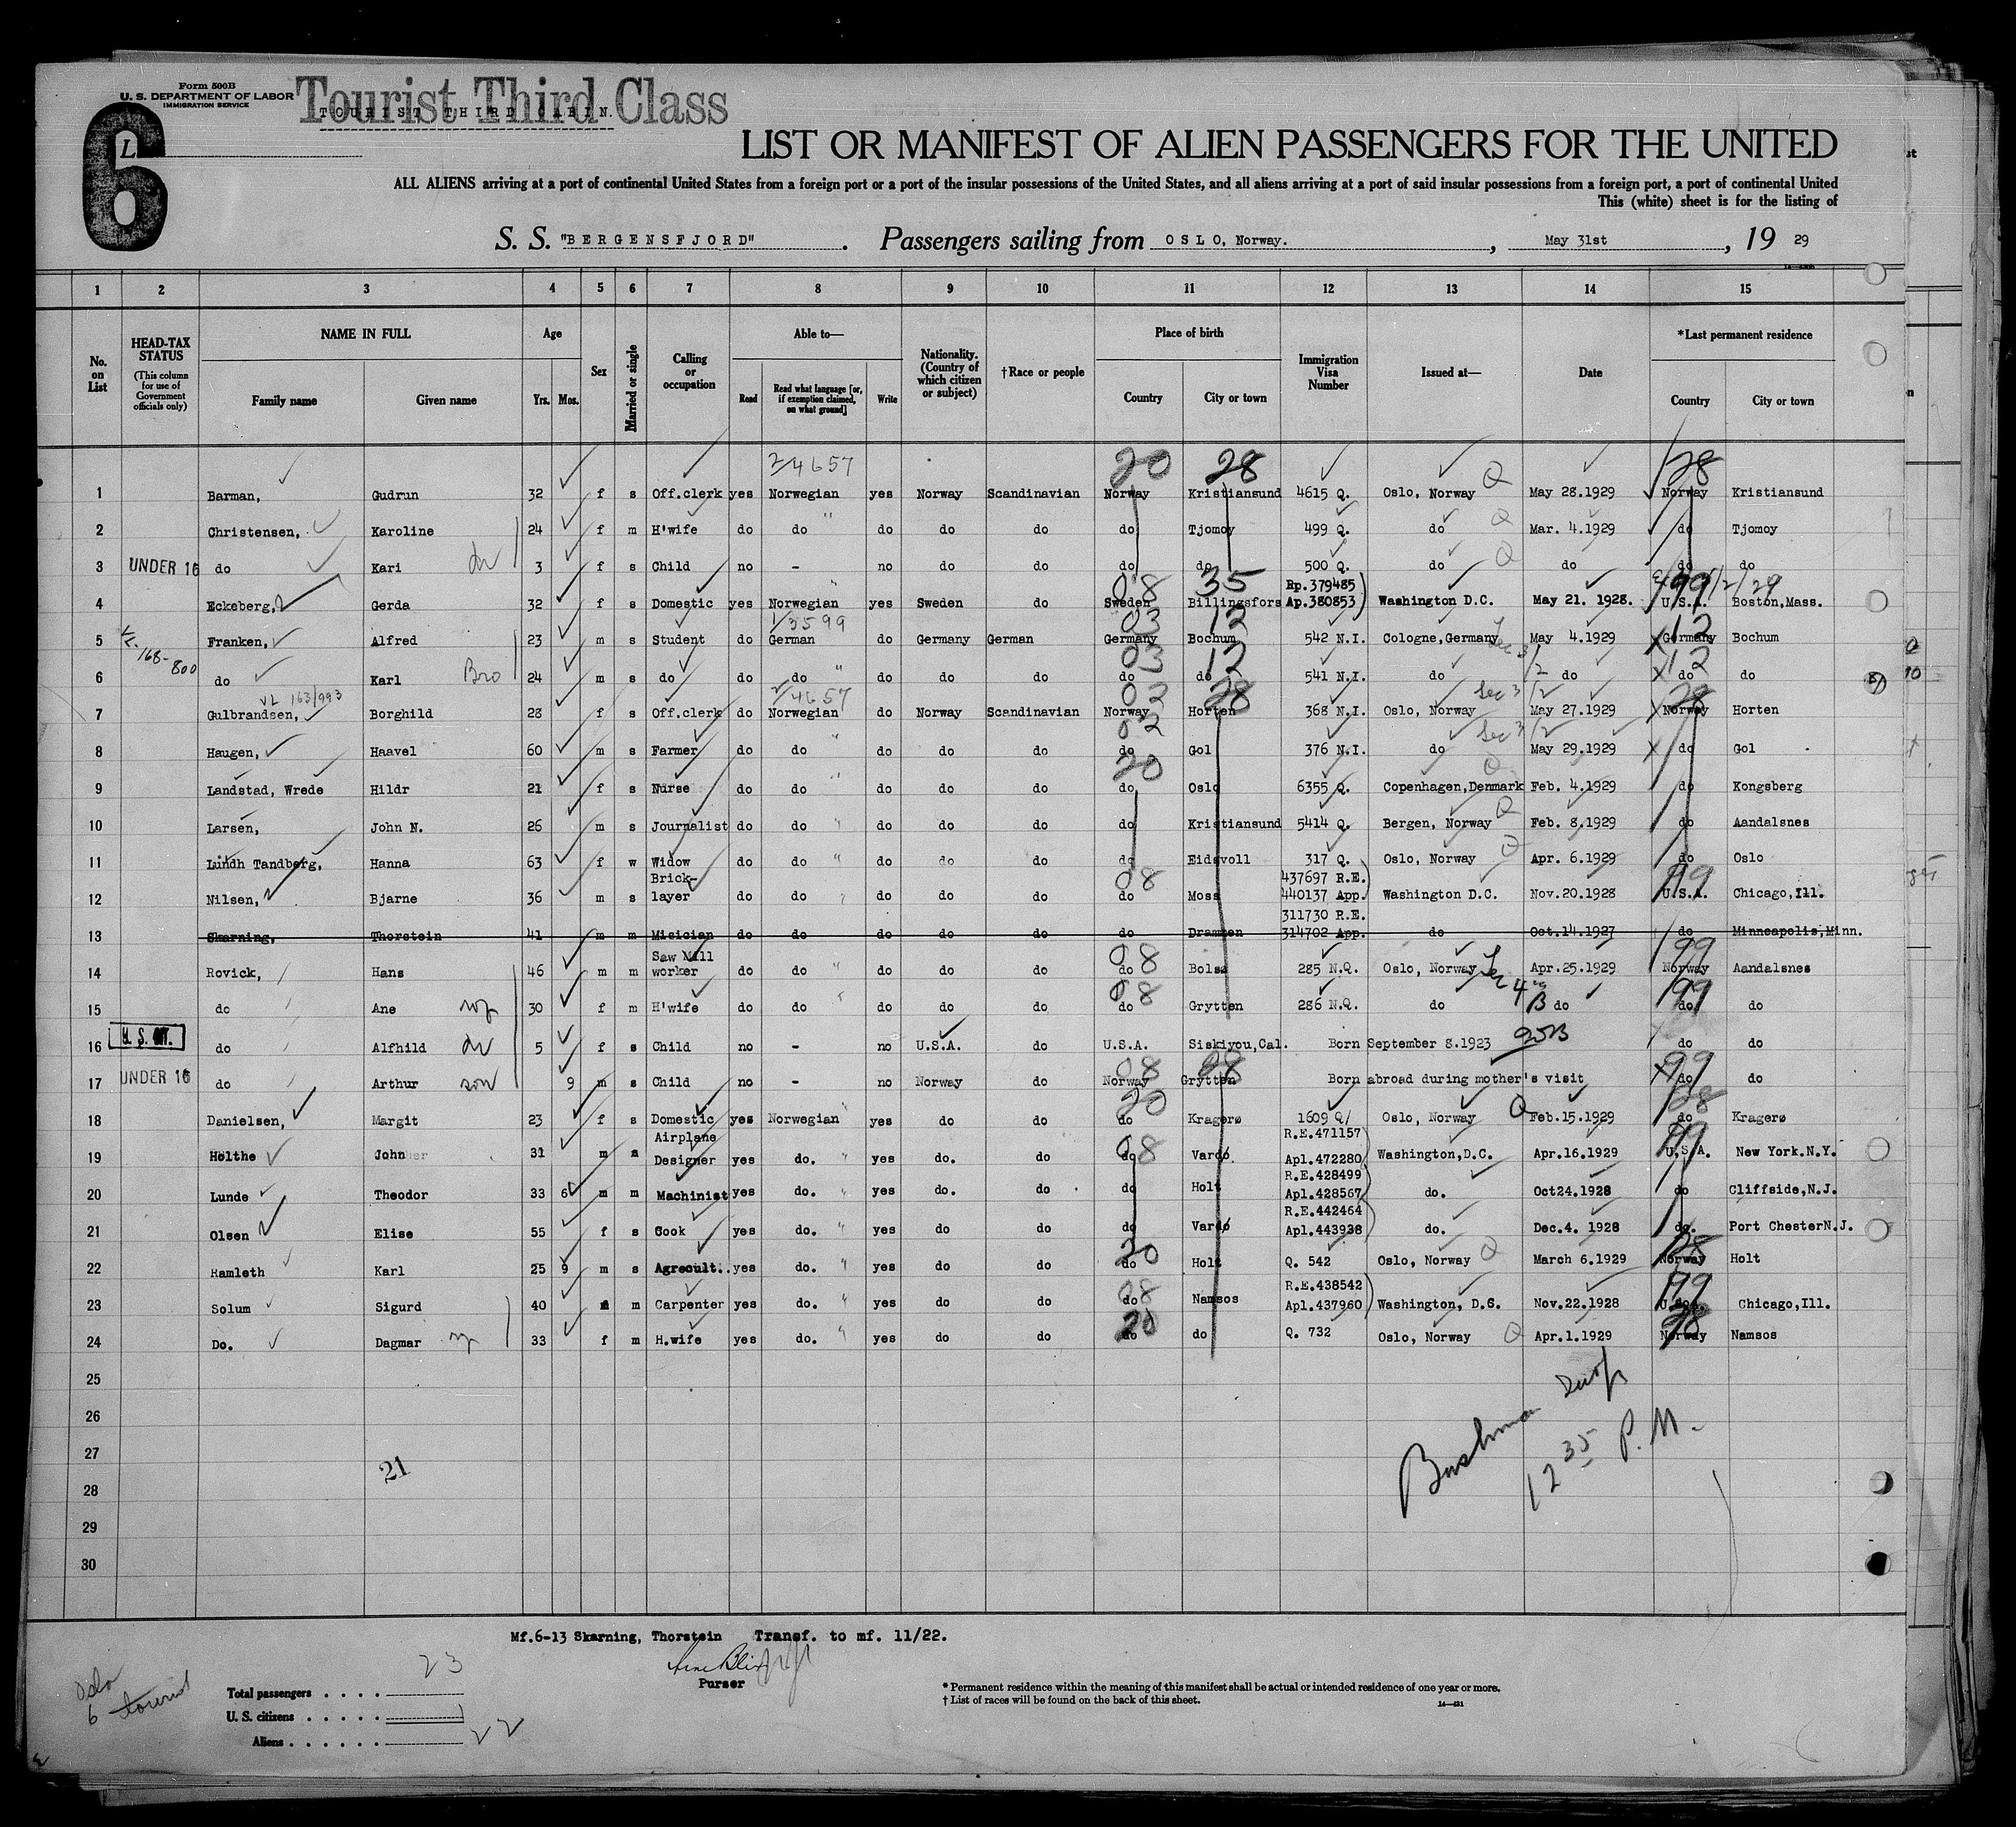 Form 500B
U. S. DEPARTMENT OF LABOR
IMMIGRATION SERVICE
Tourist Third Class
TOURIST THIRD CABIN.
6
L
LIST OR MANIFEST OF ALIEN PASSENGERS FOR THE UNITED
ALL ALIENS arriving at a port of continental United States from a foreign port or a port of the insular possessions of the United States, and all aliens arriving at a port of said insular possessions from a foreign port, a port of continental United
This (white) sheet is for the listing of
S. S. "BERGENSFJORD". Passengers sailing from OSLO, Norway., May 31st, 19 29
1 2 3 4 5 6 7 8 9 10 11 12 13 14 15
No. on List
HEAD-TAX STATUS (This column for use of Government officials only)
NAME IN FULL Family name Given name
Age Yrs. Mos.
Sex
Married or single
Calling or occupation
Able to— Read Read what language [or, if exemption claimed, on what ground] Write
Nationality. (Country of which citizen or subject)
†Race or people
Place of birth Country City or town
Immigration Visa Number
Issued at—
Date
*Last permanent residence Country City or town
2/4657 20 28 28
1 Barman, Gudrun 32 f s Off.clerk yes Norwegian yes Norway Scandinavian Norway Kristiansund 4615 Q. Oslo, Norway Q May 28.1929 Norway Kristiansund
2 Christensen, Karoline 24 f m H'wife do do " do do do do Tjomoy 499 Q. do Q Mar. 4.1929 do Tjomoy
3 UNDER 16 do Kari 3 f s Child no - no do do do do 500 Q. do Q do do do
08 35 Rp.379485 99
4 Eckeberg, Gerda 32 f s Domestic yes Norwegian yes Sweden do Sweden Billingsfors Ap.380853) Washington D.C. May 21. 1928. U.S.A. Boston,Mass.
1/3599 03 12 12
5 Franken, Alfred 23 m s Student do German do Germany German Germany Bochum 542 N.I. Cologne,Germany May 4.1929 Germany Bochum
168-800 03 12 12
6 do Karl Bro 24 m s do do do " do do do do do 541 N.I. do do do do
VL 163/993 2/4657 02 28 Sec 3/2 28
7 Gulbrandsen, Borghild 28 f s Off.clerk do Norwegian do Norway Scandinavian Norway Horten 368 N.I. Oslo, Norway May 27.1929 Norway Horten
02 Sec 3/2
8 Haugen, Haavel 60 m s Farmer do do " do do do do Gol 376 N.I. do May 29.1929 do Gol
20 Q
9 Landstad, Wrede Hildr 21 f s Nurse do do " do do do do Oslo 6355 Q. Copenhagen,Denmark Feb. 4.1929 do Kongsberg
10 Larsen, John N. 26 m s Journalist do do " do do do do Kristiansund 5414 Q. Bergen, Norway Q Feb. 8.1929 do Aandalsnes
11 Lundh Tandberg, Hanna 63 f w Widow do do " do do do do Eidsvoll 317 Q. Oslo, Norway Q Apr. 6.1929 do Oslo
Brick- 08 437697 R.E. 99
12 Nilsen, Bjarne 36 m s layer do do " do do do do Moss 440137 App. Washington D.C. Nov.20.1928 U.S.A. Chicago,Ill.
311730 R.E.
13 Skarning, Thorstein 41 m m Misician do do do do do do Drammen 314702 App. do Oct.14.1927 do Minneapolis,Minn.
Saw Mill 08 99
14 Rovick, Hans 46 m m worker do do " do do do do Bolsø 285 N.Q. Oslo, Norway Apr.25.1929 Norway Aandalsnes
08 99
15 do Ane 30 f m H'wife do do " do do do do Grytten 286 N.Q. do do do do
16 do Alfhild 5 f s Child no - no U.S.A. do U.S.A. Siskiyou,Cal. Born September 8.1923 do do
08 28 99
17 UNDER 16 do Arthur son 9 m s Child no - no Norway do Norway Grytten Born abroad during mother's visit do do
20 28
18 Danielsen, Margit 23 f s Domestic yes Norwegian " yes do do do Kragerø 1609 Q/ Oslo, Norway Q Feb.15.1929 do Kragerø
Airplane 08 R.E.471157 99
19 Holthe John 31 m Designer yes do. " yes do. do do Vardø. Apl.472280) Washington,D.C. Apr.16.1929 U.S.A. New York.N.Y.
R.E.428499
20 Lunde Theodor 33 6 m m Machinist yes do. " yes do. do do Holt Apl.428567) do. Oct24.1928 do Cliffside,N.J.
R.E.442464
21 Olsen Elise 55 f s Cook yes do. " yes do do do Vardø Apl.443938) do. Dec.4. 1928 do. Port ChesterN.J.
20 28
22 Ramleth Karl 25 9 m s Agrecult. yes do. " yes do do do Holt Q. 542 Oslo, Norway Q March 6.1929 Norway Holt
08 R.E.438542 99
23 Solum Sigurd 40 m m Carpenter yes do. " yes do do do Namsos Apl.437960) Washington, D.S. Nov.22.1928 Chicago,Ill.
20 28
24 Do. Dagmar 33 f m H.wife yes do. " yes do do do do Q. 732 Oslo, Norway Q Apr.1.1929 Norway Namsos
25
26
27
28
29
30
21
Bushman
12 35 P.M.
Mf.6-13 Skarning, Thorstein Transf. to mf. 11/22.
Purser
Oslo
6 tourist
Total passengers . . . . 23
U. S. citizens . . . . . 1
Aliens . . . . . . 22
* Permanent residence within the meaning of this manifest shall be actual or intended residence of one year or more.
† List of races will be found on the back of this sheet.